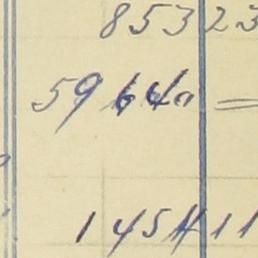 85323
5964a =
145H11